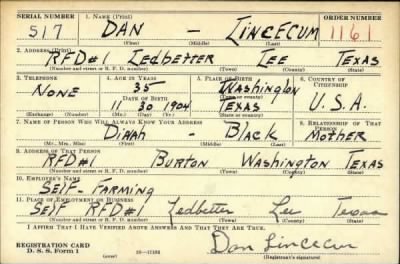 SERIAL NUMBER 1. NAME (Print) ORDER NUMBER
517 DAN - LINCECUM 1161
(First) (Middle) (Last)
2. ADDRESS (Print)
RFD#1 LEDBETTER LEE TEXAS
(Number and street or R. F. D. number) (Town) (County) (State)
3. TELEPHONE 4. AGE IN YEARS 5. PLACE OF BIRTH 6. COUNTRY OF CITIZENSHIP
NONE 35 WASHINGTON
DATE OF BIRTH (Town or county)
11 30 1904 TEXAS U.S.A.
(Exchange) (Number) (Mo.) (Day) (Yr.) (State or country)
7. NAME OF PERSON WHO WILL ALWAYS KNOW YOUR ADDRESS 8. RELATIONSHIP OF THAT PERSON
DIAHH - BLACK MOTHER
(Mr., Mrs., Miss) (First) (Middle) (Last)
9. ADDRESS OF THAT PERSON
RFD#1 BURTON WASHINGTON TEXAS
(Number and street or R. F. D. number) (Town) (County) (State)
10. EMPLOYER'S NAME
SELF-FARMING
11. PLACE OF EMPLOYMENT OR BUSINESS
SELF RFD#1 Ledbetter Lee Texas
(Number and street or R. F. D. number) (Town) (County) (State)
I AFFIRM THAT I HAVE VERIFIED ABOVE ANSWERS AND THAT THEY ARE TRUE.
REGISTRATION CARD
D. S. S. Form 1 Dan Lincecum
(Registrant's signature)